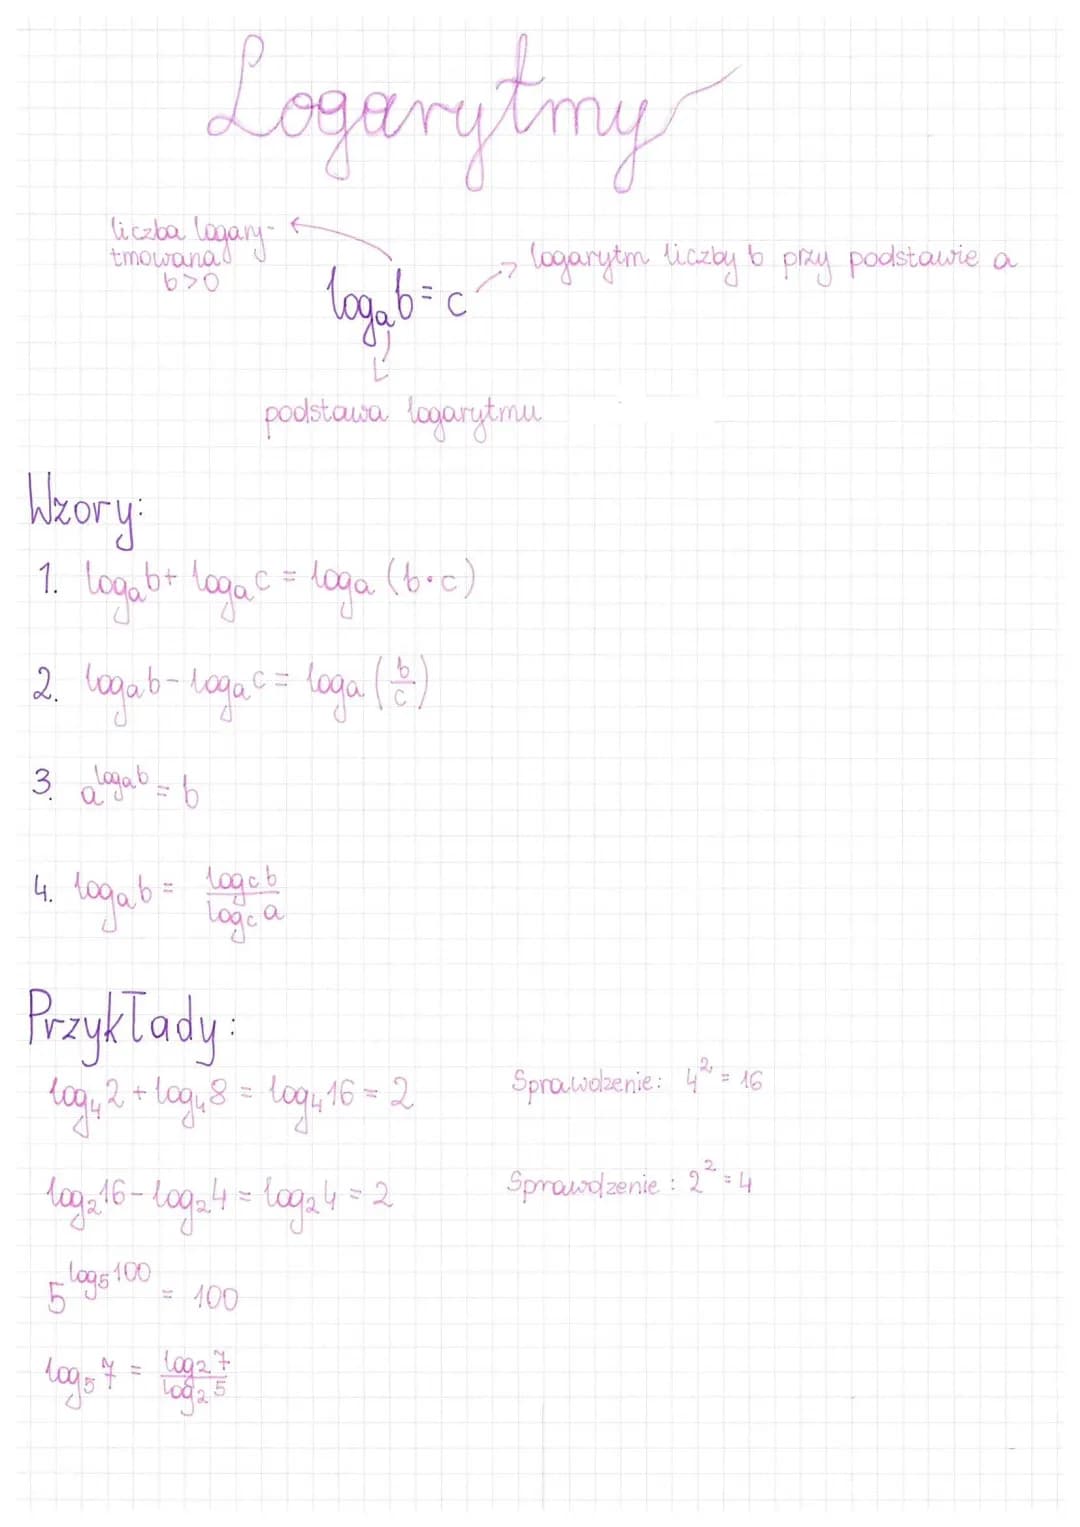 Logarytmy
liczba logary-
tmowana
b>0
logₐb = c
logarytm liczby b przy podstawie a
podstawa logarytmu
Wzory:
1. logₐb + logₐc = logₐ (b·c)
2. logₐb - logₐc = logₐ (b/c)
3. a^(logₐb) = b
4. logₐb = log_c b / log_c a
Przykłady:
log₄2 + log₄8 = log₄16 = 2 Sprawdzenie: 4² = 16
log₂16 - log₂4 = log₂4 = 2 Sprawdzenie: 2² = 4
5^(log₅100) = 100
log₅7 = log₂7 / log₂5